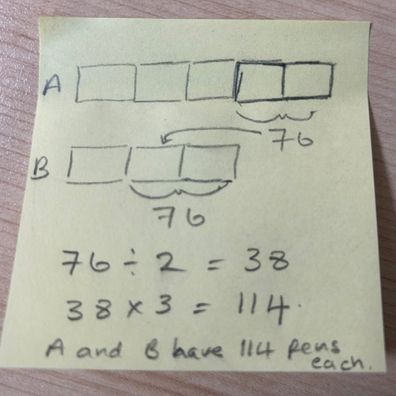 A
76
B
76
76 ÷ 2 = 38
38 × 3 = 114.
A and B have 114 pens
each.